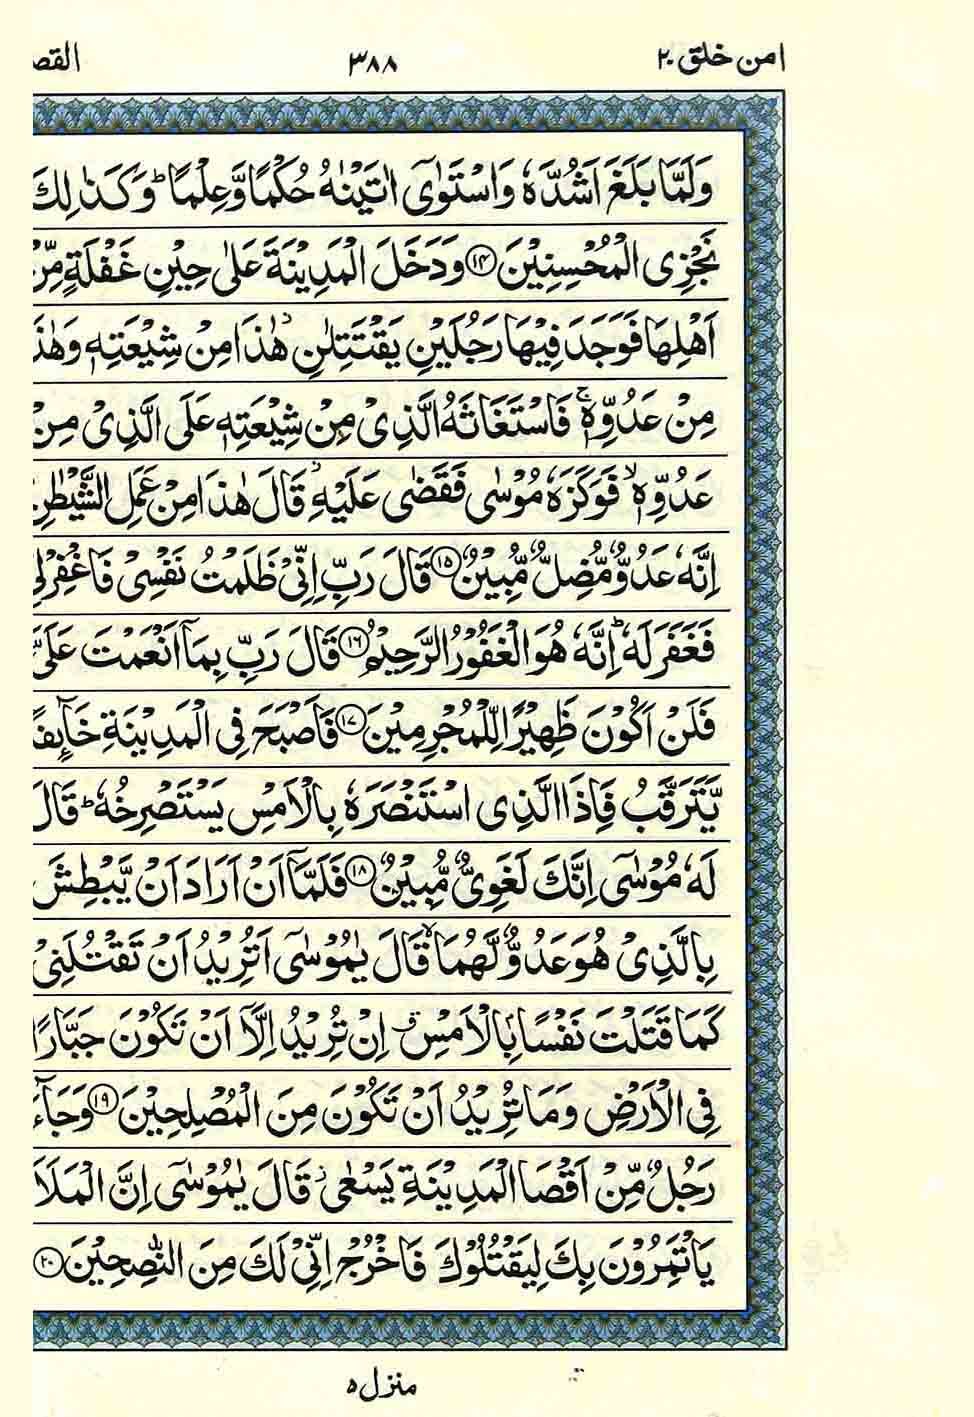 امن خلق ٢٠ ٣٨٨ القص
وَلَمَّا بَلَغَ اَشُدَّهٗ وَاسْتَوٰٓى اٰتَيْنٰهُ حُكْمًا وَّعِلْمًا ؕ وَكَذٰلِكَ
نَجْزِى الْمُحْسِنِيْنَ ﴿١٤﴾ وَدَخَلَ الْمَدِيْنَةَ عَلٰى حِيْنِ غَفْلَةٍ مِّنْ
اَهْلِهَا فَوَجَدَ فِيْهَا رَجُلَيْنِ يَقْتَتِلٰنِ ؗ هٰذَا مِنْ شِيْعَتِهٖ وَهٰذَا
مِنْ عَدُوِّهٖ ۚ فَاسْتَغَاثَهُ الَّذِىْ مِنْ شِيْعَتِهٖ عَلَى الَّذِىْ مِنْ
عَدُوِّهٖ ۙ فَوَكَزَهٗ مُوْسٰى فَقَضٰى عَلَيْهِ ؗ قَالَ هٰذَا مِنْ عَمَلِ الشَّيْطٰنِ
اِنَّهٗ عَدُوٌّ مُّضِلٌّ مُّبِيْنٌ ﴿١٥﴾ قَالَ رَبِّ اِنِّىْ ظَلَمْتُ نَفْسِىْ فَاغْفِرْ لِىْ
فَغَفَرَ لَهٗ ؕ اِنَّهٗ هُوَ الْغَفُوْرُ الرَّحِيْمُ ﴿١٦﴾ قَالَ رَبِّ بِمَاۤ اَنْعَمْتَ عَلَىَّ
فَلَنْ اَكُوْنَ ظَهِيْرًا لِّلْمُجْرِمِيْنَ ﴿١٧﴾ فَاَصْبَحَ فِى الْمَدِيْنَةِ خَآٮِٕفًا
يَّتَرَقَّبُ فَاِذَا الَّذِى اسْتَنْصَرَهٗ بِالْاَمْسِ يَسْتَصْرِخُهٗ ؕ قَالَ
لَهٗ مُوْسٰٓى اِنَّكَ لَغَوِىٌّ مُّبِيْنٌ ﴿١٨﴾ فَلَمَّاۤ اَنْ اَرَادَ اَنْ يَّبْطِشَ
بِالَّذِىْ هُوَ عَدُوٌّ لَّهُمَا ۙ قَالَ يٰمُوْسٰٓى اَتُرِيْدُ اَنْ تَقْتُلَنِىْ
كَمَا قَتَلْتَ نَفْسًۢا بِالْاَمْسِ ۖ اِنْ تُرِيْدُ اِلَّاۤ اَنْ تَكُوْنَ جَبَّارًا
فِى الْاَرْضِ وَمَا تُرِيْدُ اَنْ تَكُوْنَ مِنَ الْمُصْلِحِيْنَ ﴿١٩﴾ وَجَآءَ
رَجُلٌ مِّنْ اَقْصَا الْمَدِيْنَةِ يَسْعٰى ؗ قَالَ يٰمُوْسٰٓى اِنَّ الْمَلَاَ
يَاْتَمِرُوْنَ بِكَ لِيَقْتُلُوْكَ فَاخْرُجْ اِنِّىْ لَكَ مِنَ النّٰصِحِيْنَ ﴿٢٠﴾
منزل ٥